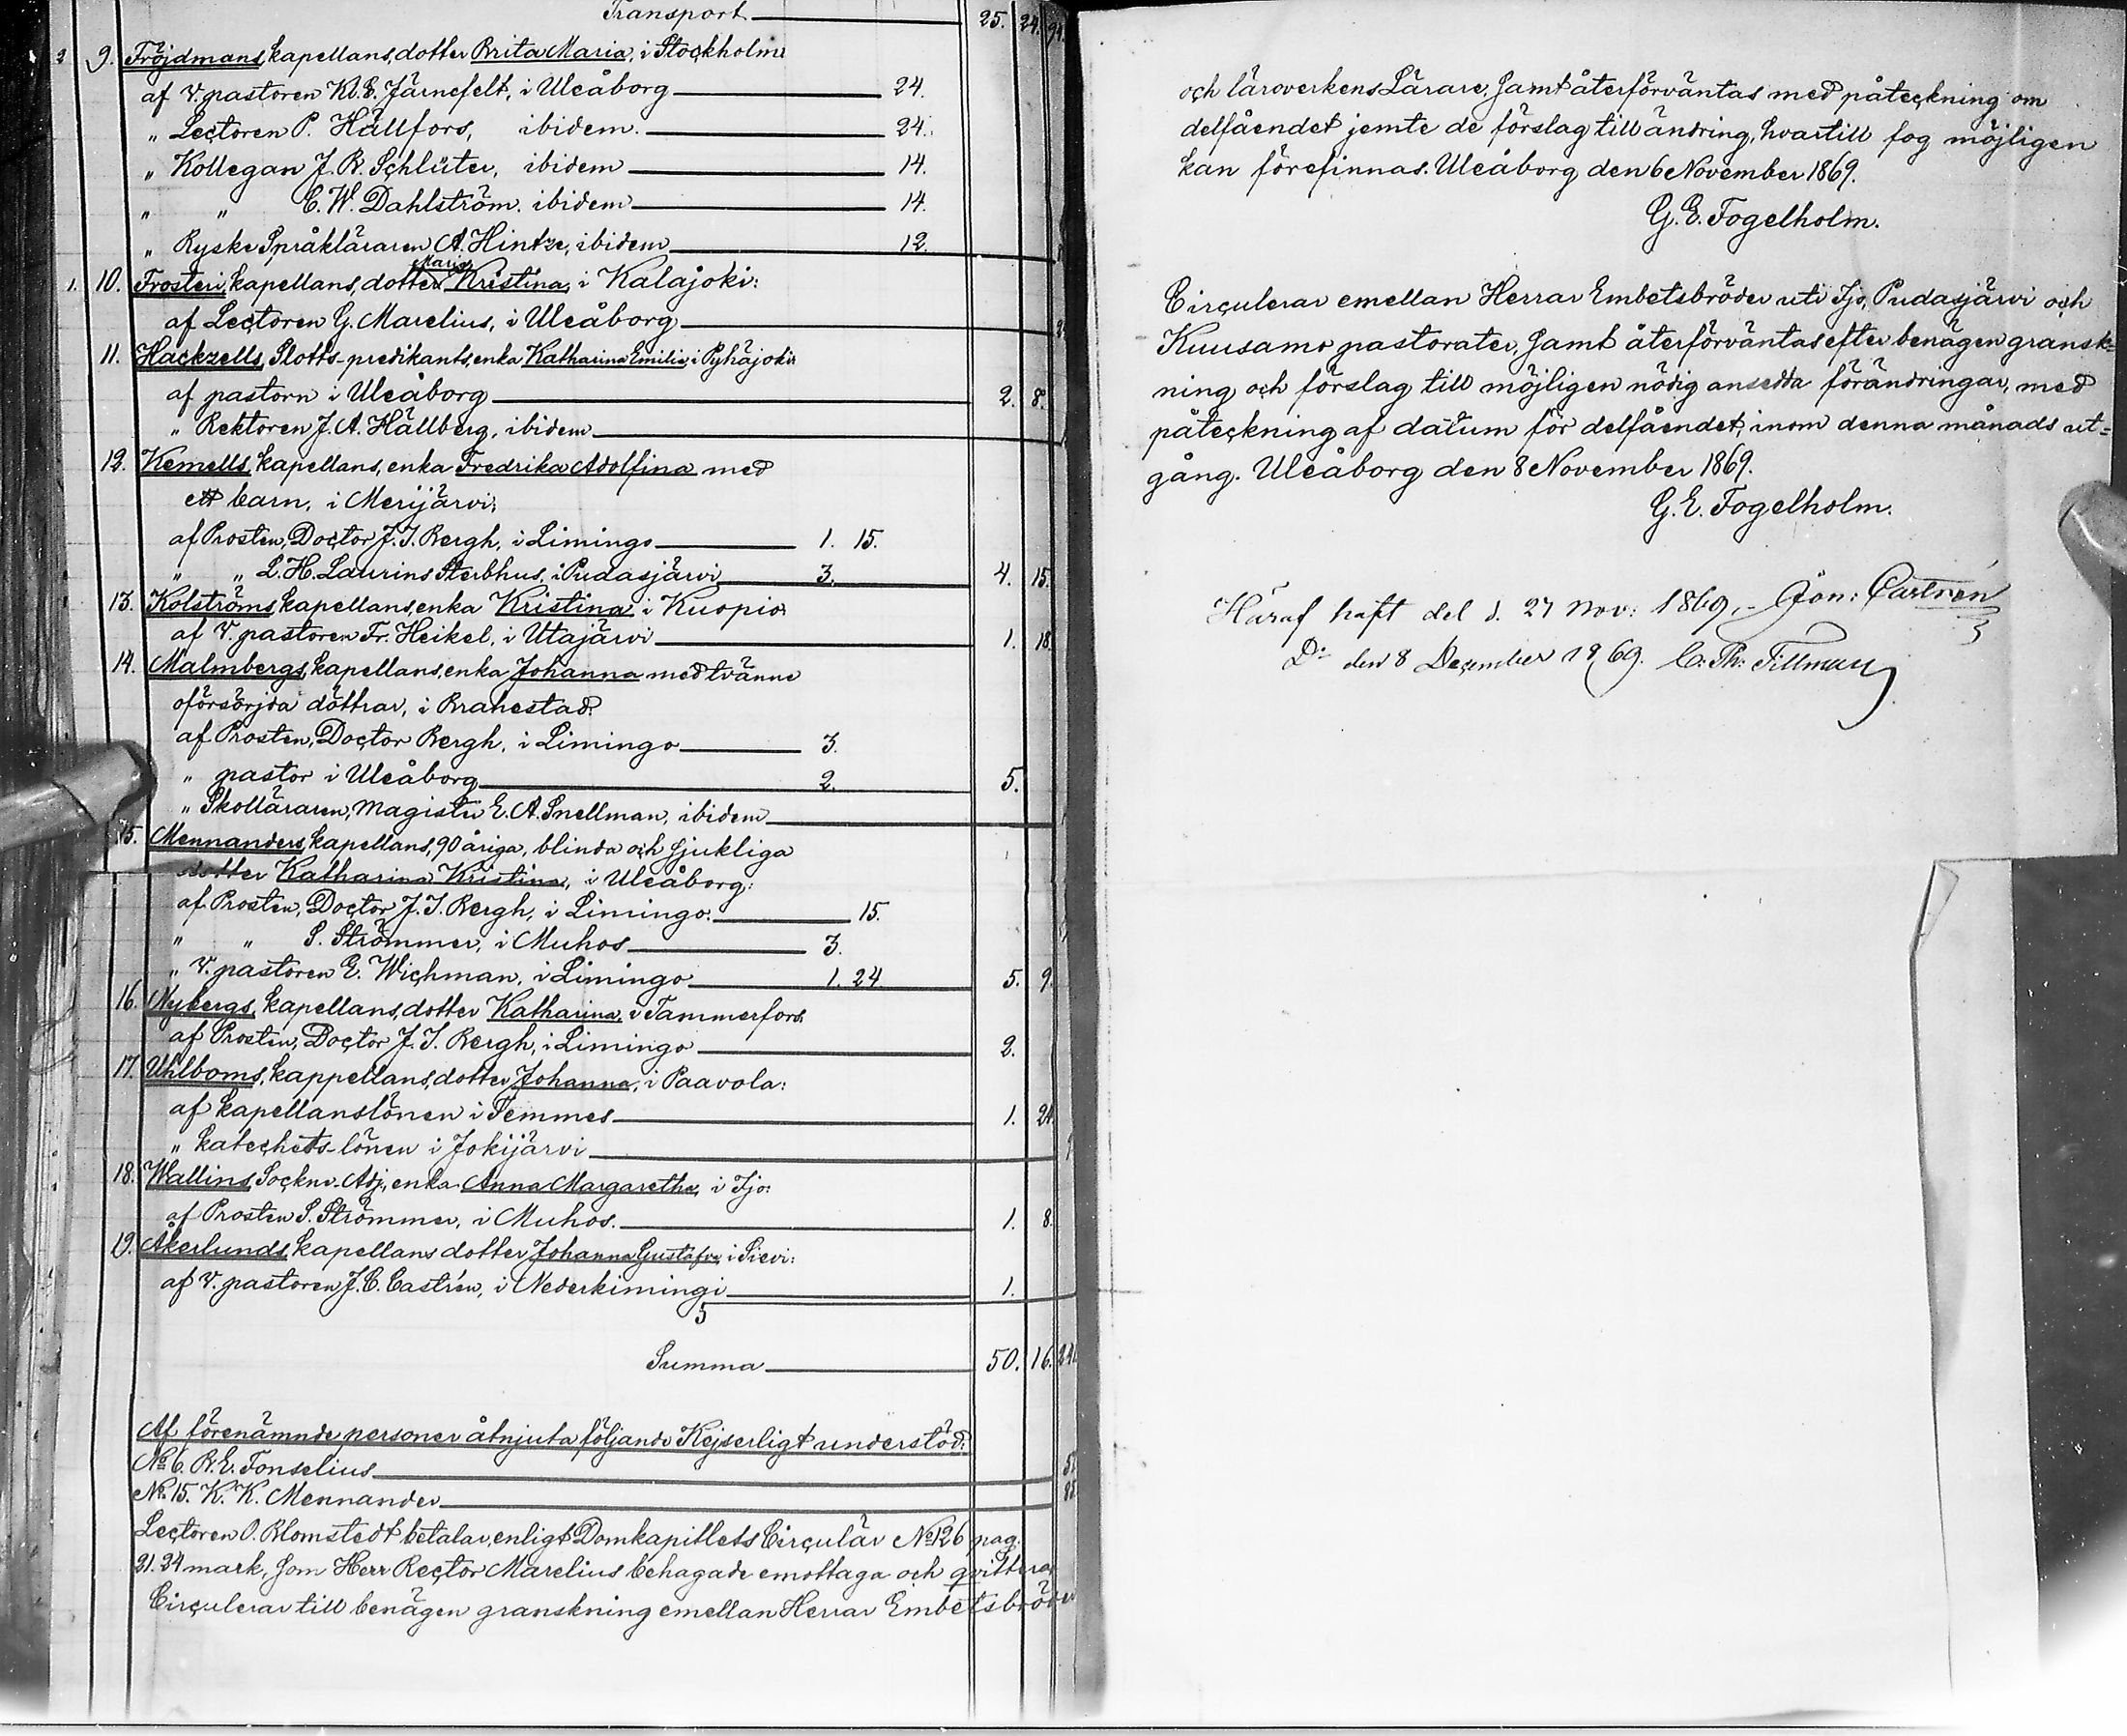 Transport 25. 24. 94.
2 9. Fröjdmans, kapellans, dotter Brita Maria, i Stockholm:
af V. pastoren Kl. E. Järnefelt, i Uleåborg 24.
„ Lectoren P. Hällfors, ibidem. 24.
„ Kollegan J. B. Schlüter, ibidem 14.
„ „ C. W. Dahlström, ibidem 14.
„ Ryske Språkläraren A. Hintze, ibidem 12.
Maria
1. 10. Frosteri, kapellans, dotter Kristina, i Kalajoki:
af Lectoren G. Marelius, i Uleåborg
11. Hackzells, Slotts-predikants, enka Katharina Emilia, i Pyhäjoki:
af pastorn i Uleåborg 2. 8.
„ Rektoren J. A. Hällberg, ibidem
12. Kemells, kapellans, enka Fredrika Adolfina med
ett barn, i Merijärvi:
af Prosten, Doctor J. I. Bergh, i Limingo 1. 15.
„ „ L. H. Laurins Sterbhus, i Pudasjärvi 3. 4. 15.
13. Kolströms, kapellans, enka Kristina i Kuopio:
af V. pastoren Fr. Heikel, i Utajärvi 1. 18.
14. Malmbergs, kapellans, enka Johanna med tvänne
oförsörjda döttrar, i Brahestad:
af Prosten, Doctor Bergh, i Limingo 3.
„ pastor i Uleåborg 2. 5.
„ Skolläraren, Magister E. A. Snellman, ibidem
15. Mennanders, kapellans, 90 åriga, blinda och sjukliga
dotter Katharina Kristina, i Uleåborg:
af Prosten, Doctor J. I. Bergh, i Limingo: 15.
„ „ S. Strömmer, i Muhos 3.
„ V. pastoren E. Wichman, i Limingo 1. 24. 5. 9.
16. Nybergs, kapellans, dotter Katharina, i Tammerfors:
af Prosten, Doctor J. I. Bergh, i Limingo 2.
17. Uhlboms, kappellans, dotter Johanna, i Paavola:
af kapellanslönen i Temmes 1. 24.
„ katechets-lönen i Jokijärvi
18. Wallins, Sockne-Adj., enka Anna Margaretha, i Ijo:
af Prosten S. Strömmer, i Muhos. 1. 8.
19. Åkerlunds, kapellans dotter Johanna Gustafva, i Sievi:
af V. pastoren J. C. Castrén, i Nederkimingi 1.
5
Summa 50. 16.
Af förenämnde personer åtnjuta följande Kejserligt understöd:
No 6. B. E. Fonselius
No 15. K. K. Mennander
Lectoren O. Blomstedt betalar, enligt Domkapitlets Circulär No 126 pag.
21. 24 mark, som Herr Rector Marelius behagade emottaga och qvittera
Circulerar till benägen granskning emellan Herrar Embetsbröder
och läroverkens Lärare, samt återförväntas med påteckning om
delfåendet jemte de förslag till ändring, hvartill fog möjligen
kan förefinnas. Uleåborg den 6 November 1869.
G. E. Fogelholm.
Circulerar emellan Herrar Embetsbröder uti Ijo, Pudasjärvi och
Kuusamo pastorater, samt återförväntas efter benägen gransk=
ning och förslag till möjligen nödig ansedda förändringar, med
påteckning af datum för delfåendet, inom denna månads ut=
gång. Uleåborg den 8 November 1869.
G. E. Fogelholm.
Häraf haft del d. 27 Nov: 1869. Jon: Castrén
Do den 8 December 1869. C. Th. Tillman